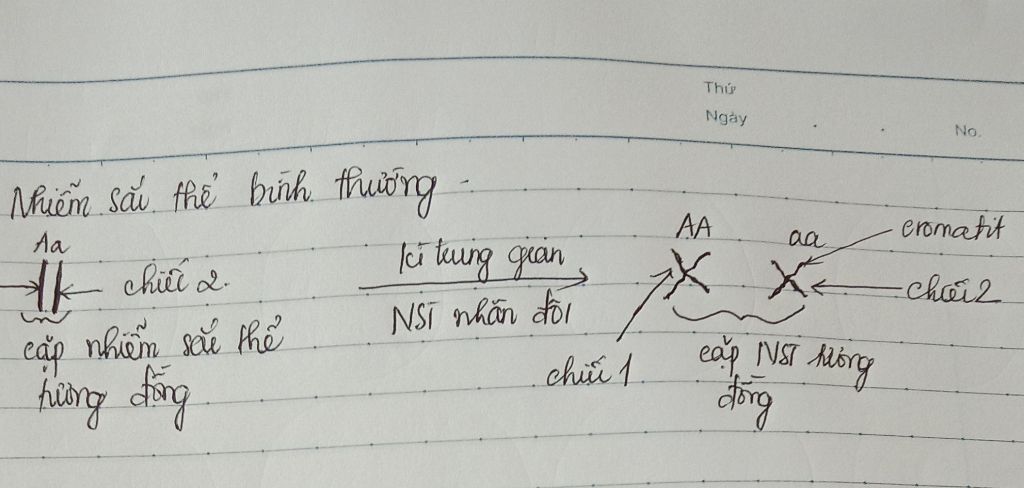 Thứ
Ngày
No.
Nhiễm sắc thể bình thường
Aa
AA
aa
cromatit
chiếc 2.
kì trung gian
chiếc 2
NST nhân đôi
cặp nhiễm sắc thể
tương đồng
chiếc 1
cặp NST tương
đồng